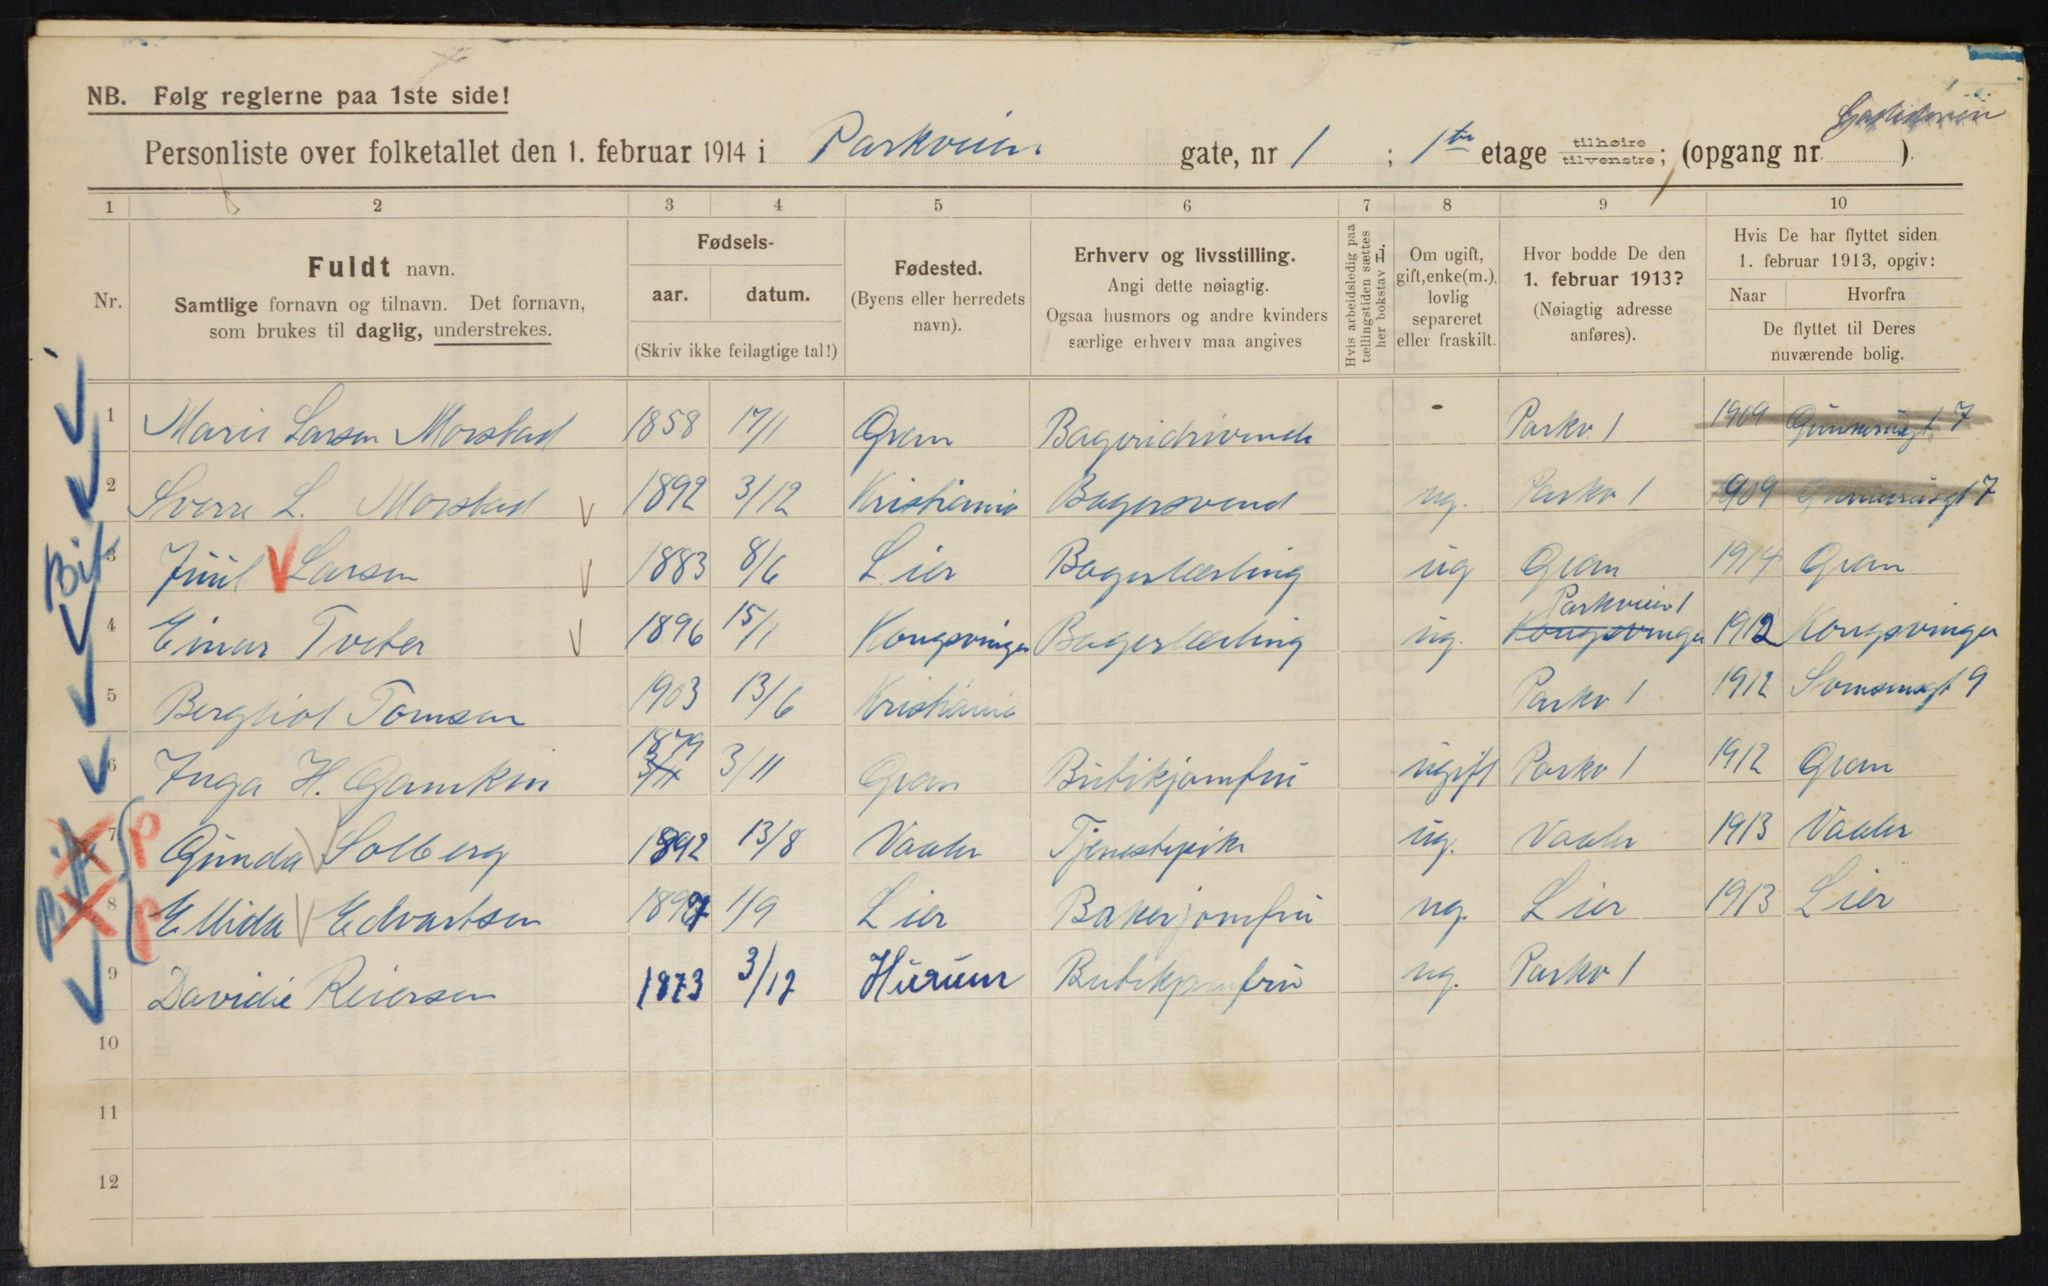 NB. Følg reglerne paa 1ste side!
Personliste over folketallet den 1. februar 1914 i Parkveien gate, nr 1 ; 1ste etage tilhøire tilvenstre; (opgang nr. ).
1 2 3 4 5 6 7 8 9 10
Nr.
Fuldt navn.
Samtlige fornavn og tilnavn. Det fornavn,
som brukes til daglig, understrekes.
Fødsels-
aar. datum.
(Skriv ikke feilagtige tal!)
Fødested.
(Byens eller herredets
navn).
Erhverv og livsstilling.
Angi dette nøiagtig.
Ogsaa husmors og andre kvinders
særlige erhverv maa angives
Hvis arbeidsledig paa
tællingstiden sættes
her bokstav L.
Om ugift,
gift, enke(m.),
lovlig
separeret
eller fraskilt.
Hvor bodde De den
1. februar 1913?
(Nøiagtig adresse
anføres).
Hvis De har flyttet siden
1. februar 1913, opgiv:
Naar Hvorfra
De flyttet til Deres
nuværende bolig.
1 Marie Larsen Morstad 1858 17/1 Gran Bageridrivende - Parkv 1 1909 Gunerusgt 7
2 Sverre L. Morstad 1892 3/12 Kristiania Bagersvend ug. Parkv 1 1909 Gunerusgt 7
3 Juul Larsen 1883 8/6 Lier Bagerlærling ug Gran 1914 Gran
Parkveien 1
4 Einar Tveter 1896 15/1 Kongsvinger Bagerlærling ug. Kongsvinger 1912 Kongsvinger
5 Bergliot Tomsen 1903 13/6 Kristiania Parkv 1 1912 9
1879
6 Inga H. 3/11 3/11 Gran Butikjomfru ugift Parkv 1 1912 Gran
7 Gunda Solberg 1892 13/8 Vaaler Tjenestepike ug. Vaaler 1913 Vaaler
8 Ellida Edvartsen 1897 1/9 Lier Bakerjomfru ug. Lier 1913 Lier
9 Davidie Reiersen 1873 3/12 Hurum Butikjomfru ug. Parkv 1
10
11
12
p
p